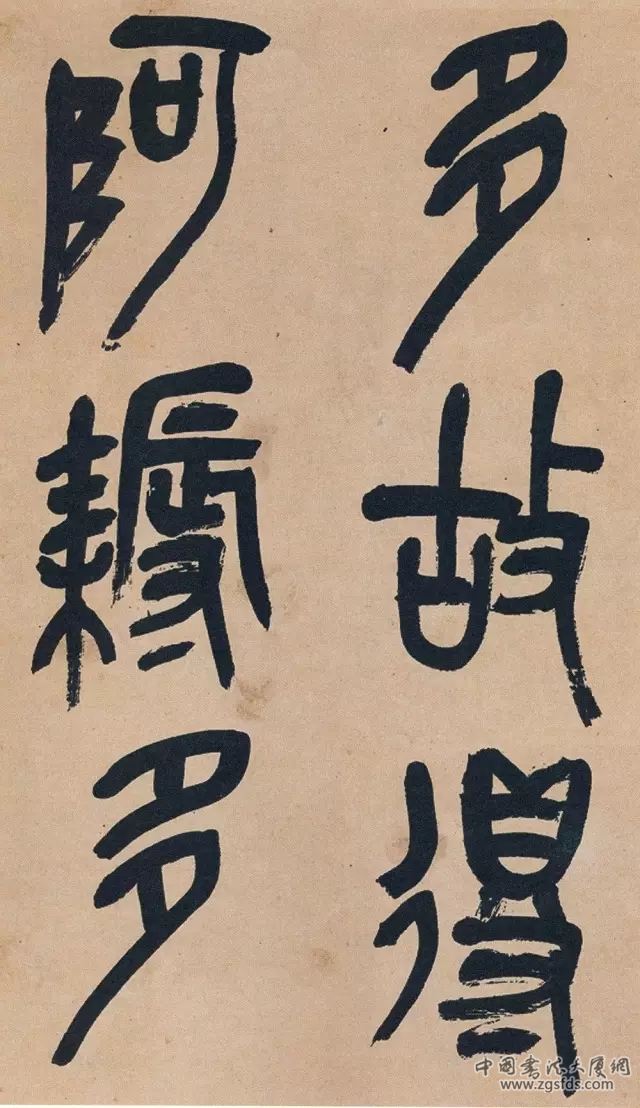 多故得
阿耨多
中国书法大厦网
www.zgsfds.com